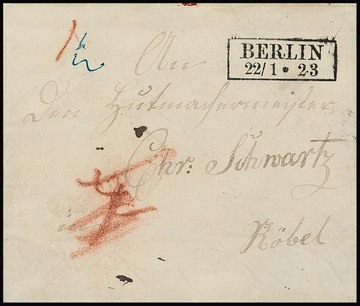 BERLIN
22/1 • 2-3
1½
An
Den Hutmachermeister
Chr: Schwartz
Röbel